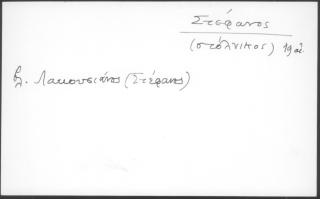 Στέφανος
(στόλνικος) 19 αἰ.
βλ. Λακουσιάνος (Στέφανος)